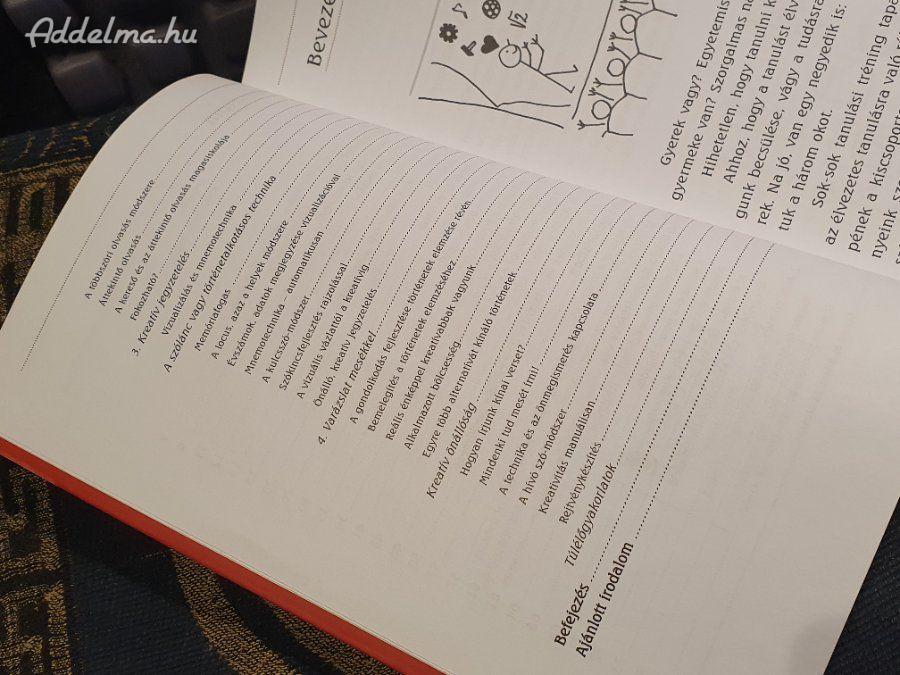 Addelma.hu
A többszöri olvasás módszere
Áttekintő olvasás
A kereső és az áttekintő olvasás magasiskolája
Fokozható?
3. Kreatív jegyzetelés
Vizualizálás és mnemotechnika
A szólánc vagy történetalkotásos technika
Memóriafogas
A locus, azaz a helyek módszere
Évszámok, adatok megjegyzése vizualizációval
Mnemotechnika – automatikusan
A kulcsszó-módszer
Szókincsfejlesztés rajzolással
A vizuális vázlattól a kreatívig
Önálló, kreatív jegyzetelés
4. Varázslat mesékkel
A gondolkodás fejlesztése történetek elemzése révén
Bemelegítés a történetek elemzéséhez
Reális énképpel kreatívabbak vagyunk
Alkalmazott bölcsesség
Egyre több alternatívát kínáló történetek
Kreatív önállóság
Hogyan írjunk kínai verset?
Mindenki tud mesét írni!
A technika és az önmegismerés kapcsolata
A hívó szó-módszer
Kreativitás manuálisan
Rejtvénykészítés
Túlélőgyakorlatok
Befejezés
Ajánlott irodalom
Beveze
√2
Gyerek vagy? Egyetemis
gyermeke van? Szorgalmas
Hihetetlen, hogy tanulni
Ahhoz, hogy a tanulást élv
gunk becsülése, vágy a tudásra
rek. Na jó, van egy negyedik is:
tuk a három okot.
Sok-sok tanulási tréning tapa
az élvezetes tanulásra való
pének a kiscsoporto
nyeink